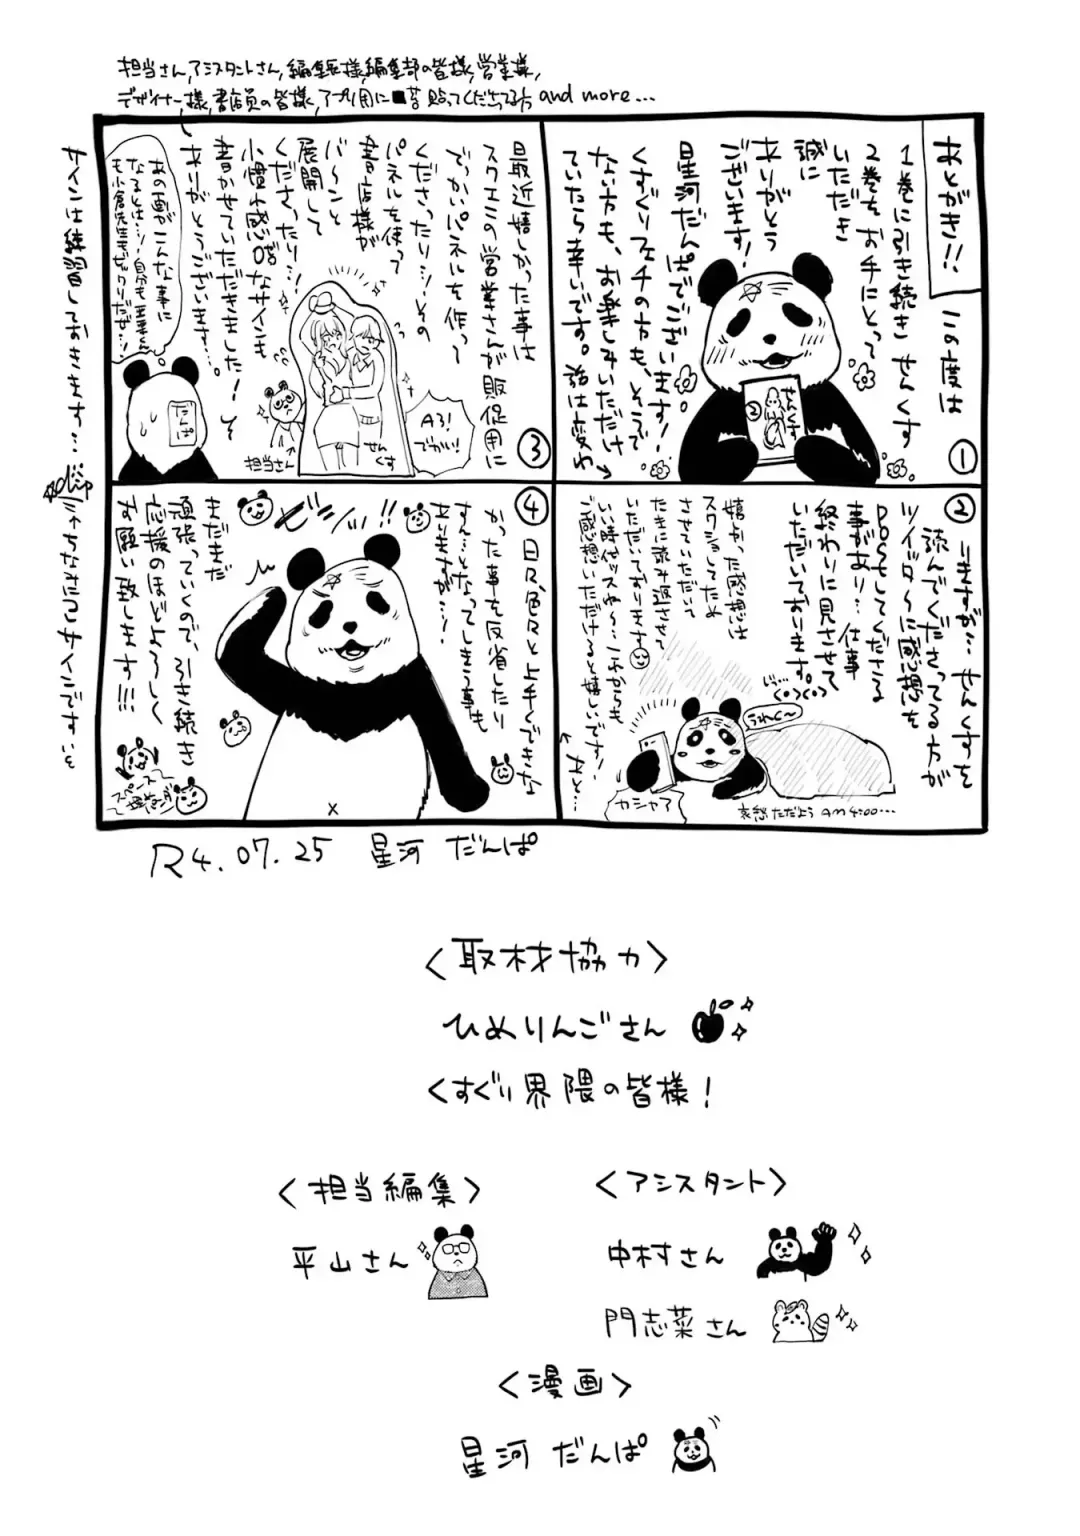 あとがき!!
この度は
1巻に引き続きせんくす
2巻をお手にとって
いただき
誠に
ありがとう
ございます!
星河だんぱでございます!
くすぐりフェチの方も、そうで
ない方も、お楽しみいただけ
ていたら幸いです。話は変わ
せんくす
②
①
②
りますが…せんくすを
読んでくださってる方が
ツイッターに感想を
POSTしてくださる
事があり…仕事
終わりに見させて
いただいております。
嬉かった感想は
スクショしてたね
させていただいて
たまに読み返させて
いただいております
いい時代ッスね〜…これからも
ご感想いただけると嬉しいです!
あと…
うれし〜
カシャァ
哀愁ただよう AM4:00…
最近嬉しかった事は
スクエニの営業さんが販促用に
でっかいパネルを作って
くださったり…!その
パネルを使って
書店様が
バーンと
展開して
くださったり…!
小慣れ感ゼロなサインも
書かせていただきました!
ありがとうございます…。
担当さん,アシスタントさん,編集長様,編集部の皆様,営業様,
デザイナー様,書店員の皆様,アプリ用に■台貼ってくださってる方 and more…
あの画がこんな事に
なるとは…!
せんくす
A3!
でかい!
担当さん
だんぱ
③
④
日々、色々と上手くできな
かった事を反省したり
すん…となってしまう事も
ありますが…!
まだまだ
頑張っていくので、引き続き
応援のほどよろしく
お願い致します!!!
サインは練習しておきます…
ちなみにこのサインですを
R4.07.25 星河 だんぱ
<取材協力>
ひめりんごさん
くすぐり界隈の皆様!
<担当編集>
平山さん
<アシスタント>
中村さん
門志菜さん
<漫画>
星河 だんぱ